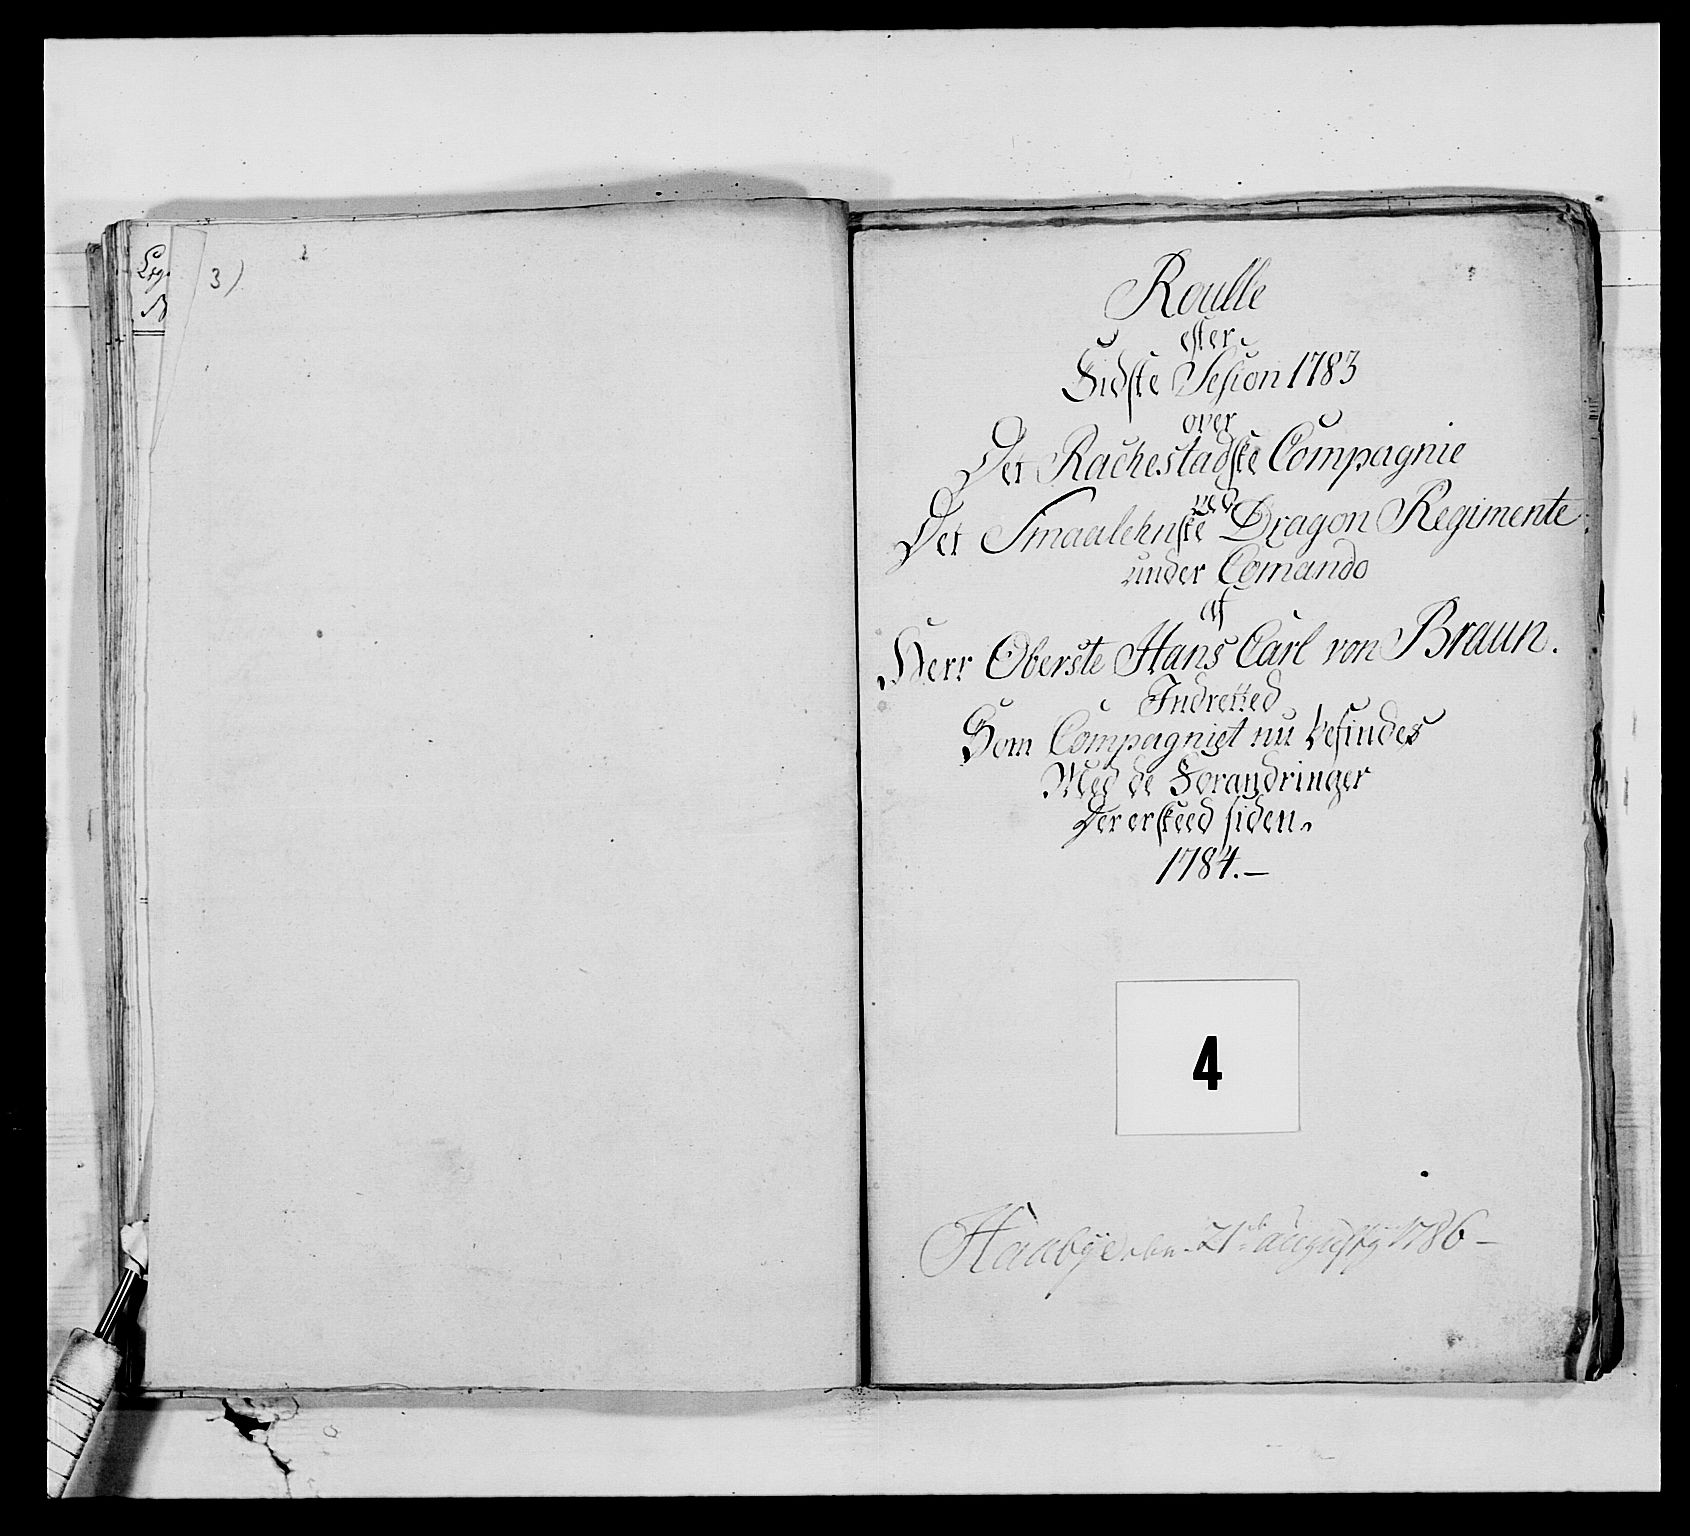 3)
Roulle
efter
Sidste Sesion 1783
over
Det Rachestadske Compagnie
ved
Det Smaalehnske Dragon Regimente
under Comando
af
Herr Oberste Hans Carl von Braun.
Indretted
Som Compagniet nu befindes
Med de Forandringer
Der er skeed siden.
1784.—
4
Haabye 21 augusty 1786 —